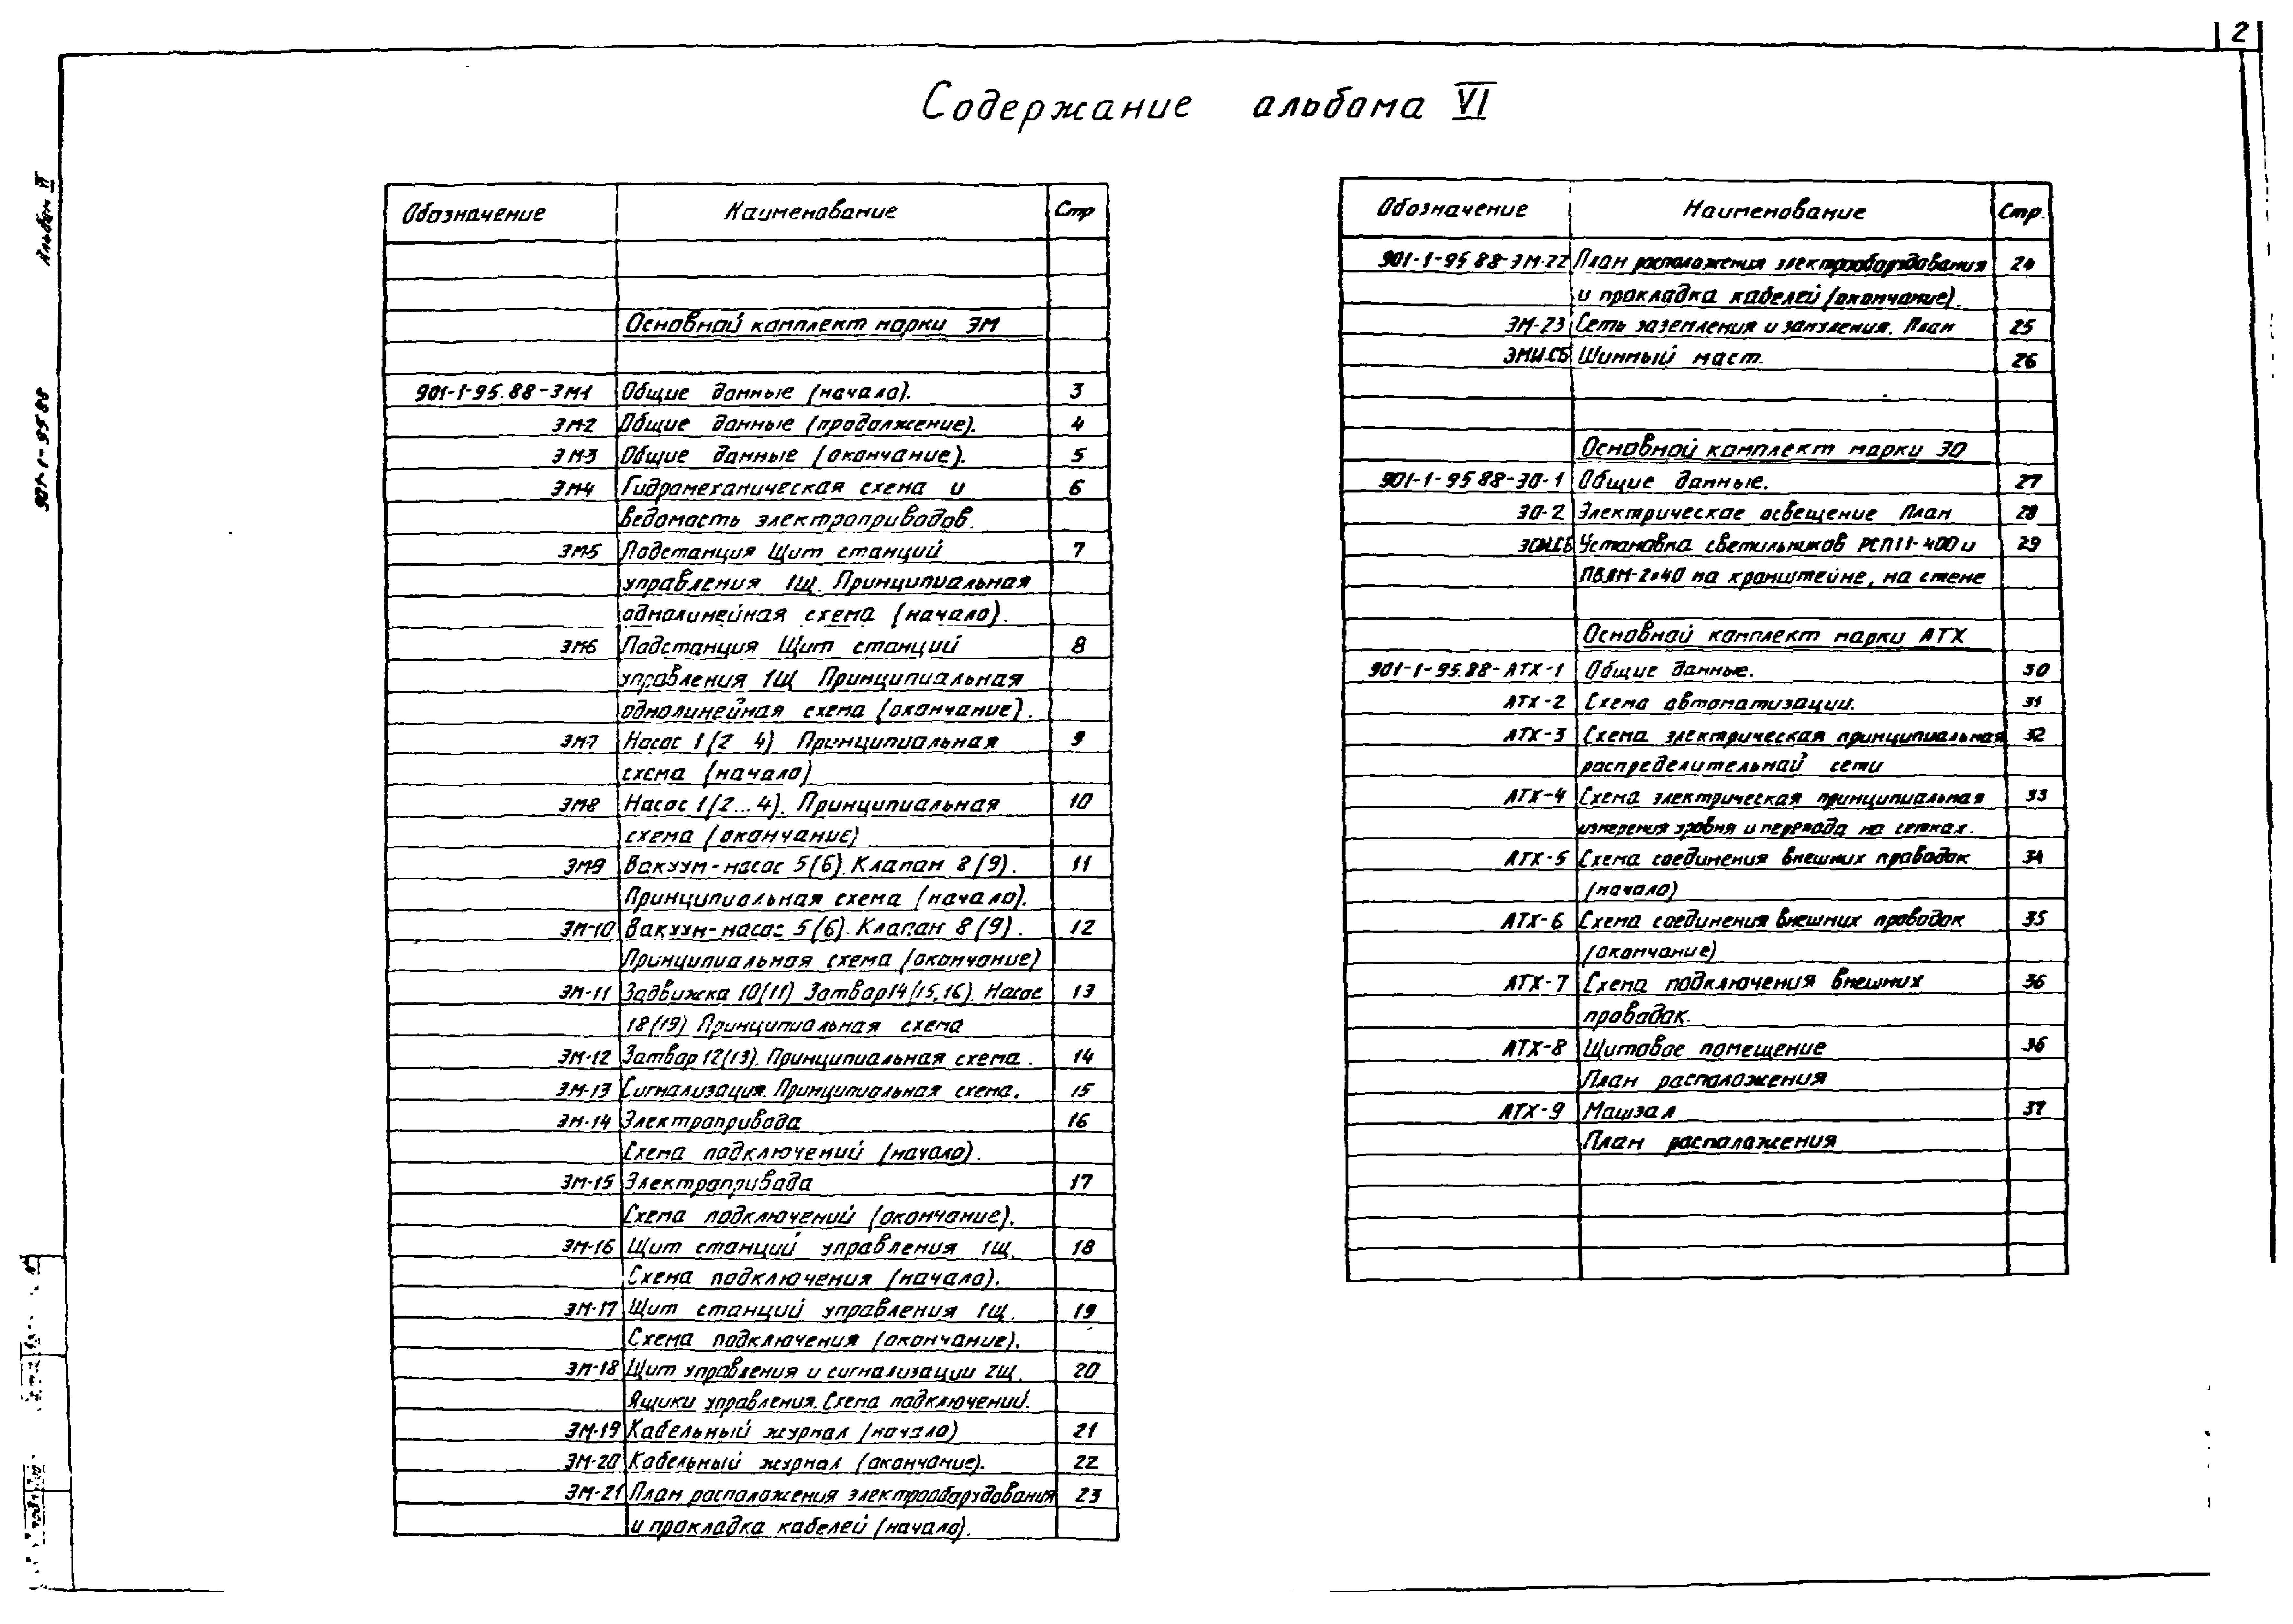 2
Содержание альбома VI
Альбом VI
901-1-95 88
Обозначение Наименование Стр
Основной комплект марки ЭМ
901-1-95.88-ЭМ1 Общие данные (начало). 3
ЭМ2 Общие данные (продолжение). 4
ЭМ3 Общие данные (окончание). 5
ЭМ4 Гидромеханическая схема и 6
ведомость электроприводов.
ЭМ5 Подстанция Щит станций 7
управления 1Щ. Принципиальная
однолинейная схема (начало).
ЭМ6 Подстанция Щит станций 8
управления 1Щ Принципиальная
однолинейная схема (окончание).
ЭМ7 Насос 1(2 4) Принципиальная 9
схема (начало)
ЭМ8 Насос 1(2...4). Принципиальная 10
схема (окончание)
ЭМ9 Вакуум-насос 5(6). Клапан 8(9). 11
Принципиальная схема (начало).
ЭМ-10 Вакуум-насос 5(6). Клапан 8(9). 12
Принципиальная схема (окончание)
ЭМ-11 Задвижка 10(11) Затвар14(15,16). Насос 13
18(19) Принципиальная схема
ЭМ-12 Затвор 12(13). Принципиальная схема. 14
ЭМ-13 Сигнализация. Принципиальная схема. 15
ЭМ-14 Электропривода 16
Схема подключений (начало).
ЭМ-15 Электропривода 17
Схема подключений (окончание).
ЭМ-16 Щит станций управления 1Щ. 18
Схема подключения (начало).
ЭМ-17 Щит станций управления 1Щ. 19
Схема подключения (окончание).
ЭМ-18 Щит управления и сигнализации 2Щ. 20
Ящики управления. Схема подключений.
ЭМ-19 Кабельный журнал (начало) 21
ЭМ-20 Кабельный журнал (окончание). 22
ЭМ-21 План расположения электрооборудования 23
и прокладка кабелей (начало).
Обозначение Наименование Стр.
901-1-95 88-ЭМ-22 План расположения электрооборудования 24
и прокладка кабелей (окончание).
ЭМ-23 Сеть заземления и зануления. План 25
ЭМИ.СБ Шинный мост. 26
Основной комплект марки ЭО
901-1-95 88-ЭО-1 Общие данные. 27
ЭО-2 Электрическое освещение План 28
ЭОИ.СБ Установка светильников РСП11-400 и 29
ПВЛМ-2×40 на кронштейне, на стене
Основной комплект марки АТХ
901-1-95.88-АТХ-1 Общие данные. 30
АТХ-2 Схема автоматизации. 31
АТХ-3 Схема электрическая принципиальная 32
распределительной сети
АТХ-4 Схема электрическая принципиальная 33
измерения уровня и перепада на сетках.
АТХ-5 Схема соединения внешних проводок 34
(начало)
АТХ-6 Схема соединения внешних проводок 35
(окончание)
АТХ-7 Схема подключения внешних 36
проводок.
АТХ-8 Щитовое помещение 36
План расположения
АТХ-9 Машзал 37
План расположения